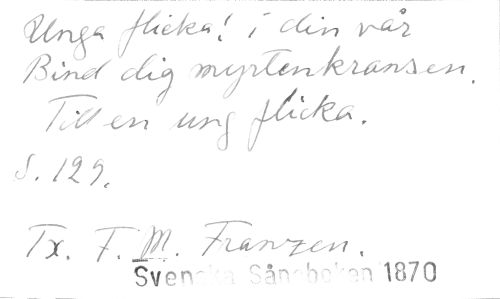 Unga flicka! i din vår
Bind dig myrtenkransen.
Till en ung flicka.
S. 129.
Tx. F. M. Franzen.
Svenska Sångboken 1870